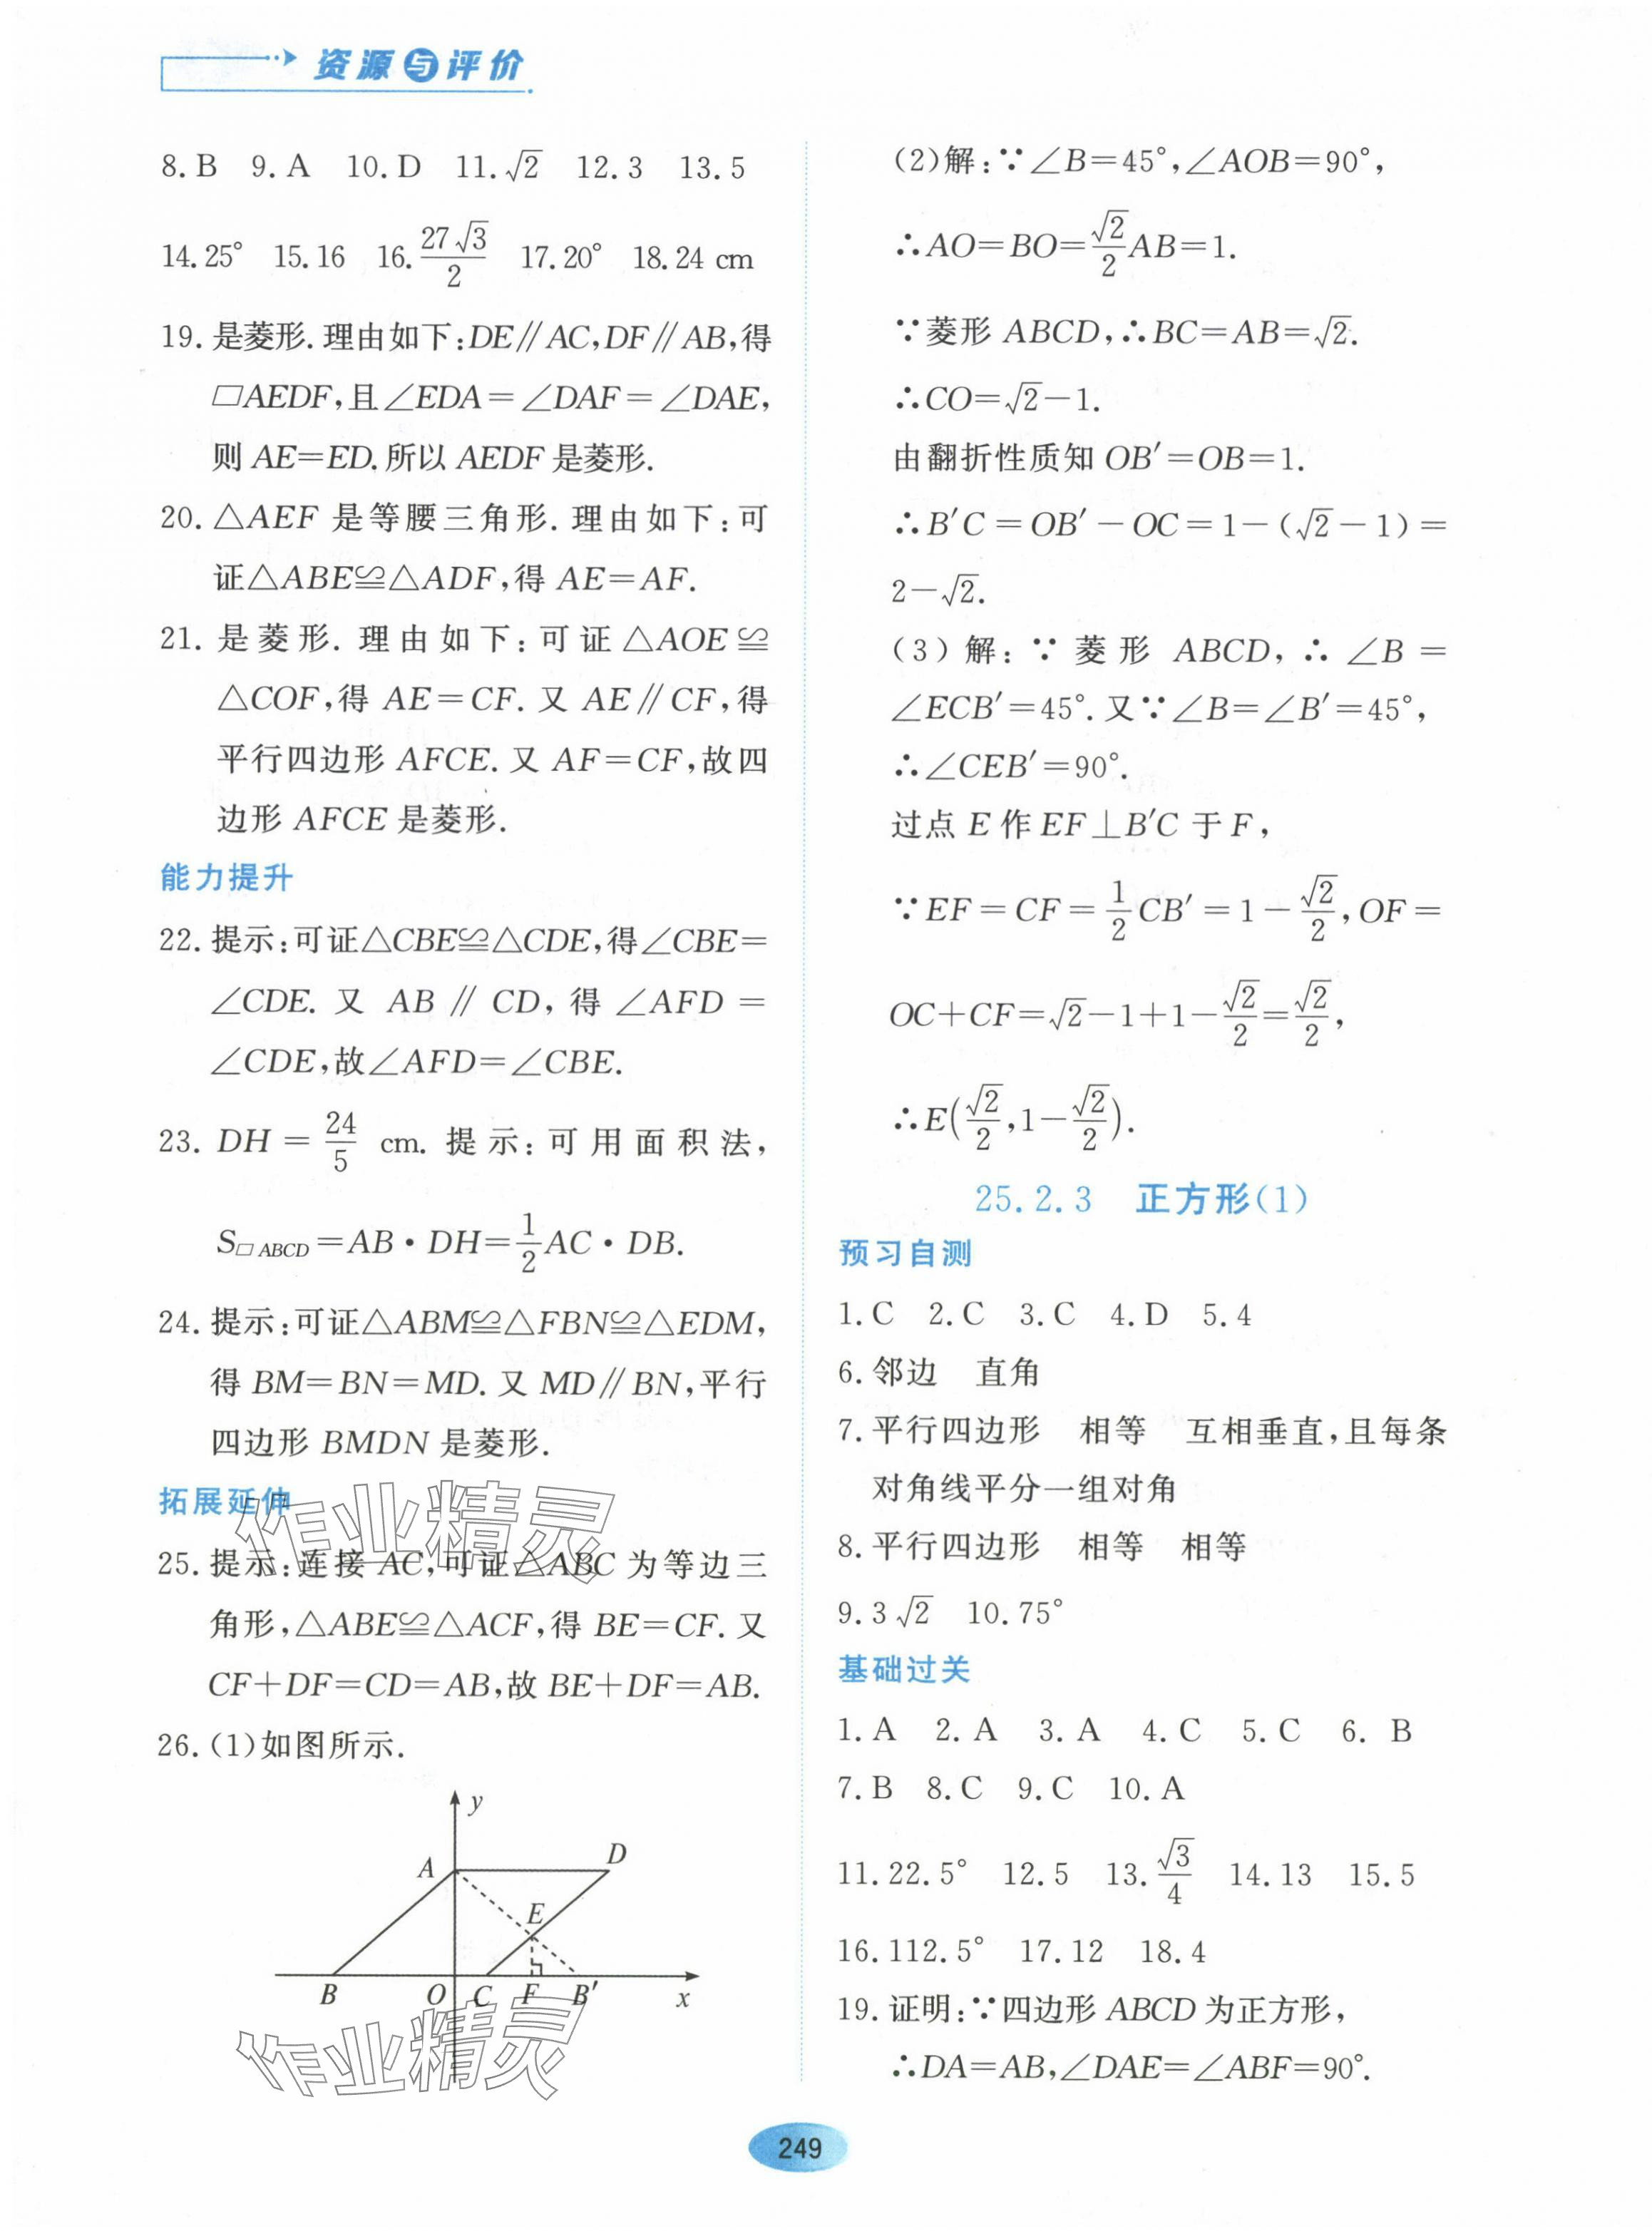 资源与评价
8.B 9.A 10.D 11.√2 12.3 13.5
14.25° 15.16 16.27√3/2 17.20° 18.24 cm
19.是菱形.理由如下:DE∥AC,DF∥AB,得
▱AEDF,且∠EDA=∠DAF=∠DAE,
则AE=ED.所以AEDF是菱形.
20.△AEF是等腰三角形.理由如下:可
证△ABE≌△ADF,得AE=AF.
21.是菱形.理由如下:可证△AOE≌
△COF,得AE=CF.又AE∥CF,得
平行四边形AFCE.又AF=CF,故四
边形AFCE是菱形.
能力提升
22.提示:可证△CBE≌△CDE,得∠CBE=
∠CDE.又AB∥CD,得∠AFD=
∠CDE,故∠AFD=∠CBE.
23.DH=24/5 cm.提示:可用面积法,
S▱ABCD=AB·DH=1/2AC·DB.
24.提示:可证△ABM≌△FBN≌△EDM,
得BM=BN=MD.又MD∥BN,平行
四边形BMDN是菱形.
拓展延伸
25.提示:连接AC,可证△ABC为等边三
角形,△ABE≌△ACF,得BE=CF.又
CF+DF=CD=AB,故BE+DF=AB.
26.(1)如图所示.
y
A D
E
B O C F B′ x
作业精灵
作业精灵
(2)解:∵∠B=45°,∠AOB=90°,
∴AO=BO=√2/2AB=1.
∵菱形ABCD,∴BC=AB=√2.
∴CO=√2-1.
由翻折性质知OB′=OB=1.
∴B′C=OB′-OC=1-(√2-1)=
2-√2.
(3)解:∵菱形ABCD,∴∠B=
∠ECB′=45°.又∵∠B=∠B′=45°,
∴∠CEB′=90°.
过点E作EF⊥B′C于F,
∵EF=CF=1/2CB′=1-√2/2,OF=
OC+CF=√2-1+1-√2/2=√2/2,
∴E(√2/2,1-√2/2).
25.2.3 正方形(1)
预习自测
1.C 2.C 3.C 4.D 5.4
6.邻边 直角
7.平行四边形 相等 互相垂直,且每条
对角线平分一组对角
8.平行四边形 相等 相等
9.3√2 10.75°
基础过关
1.A 2.A 3.A 4.C 5.C 6.B
7.B 8.C 9.C 10.A
11.22.5° 12.5 13.√3/4 14.13 15.5
16.112.5° 17.12 18.4
19.证明:∵四边形ABCD为正方形,
∴DA=AB,∠DAE=∠ABF=90°.
249